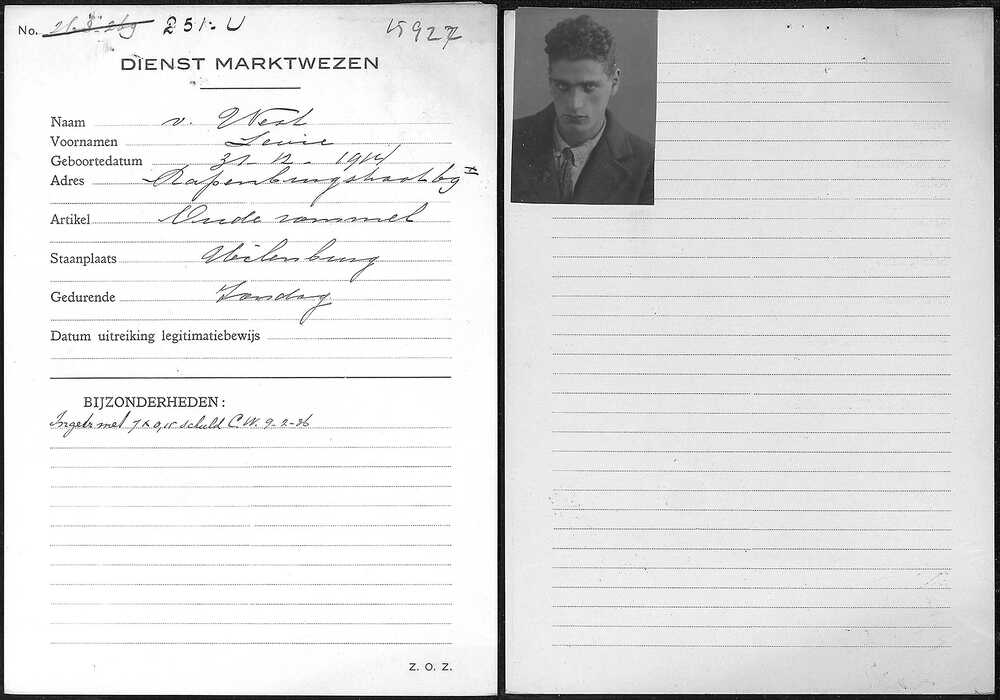 No. 251. U 15927
DIENST MARKTWEZEN
Naam v. West
Voornamen Levie
Geboortedatum 31-12-1914
Adres Rapenburgstraat 69 II
Artikel Oude rommel
Staanplaats Uilenburg
Gedurende Zondag
Datum uitreiking legitimatiebewijs
BIJZONDERHEDEN:
Ingetr met 7 x 0,15 schuld C.W. 9-2-36
Z. O. Z.